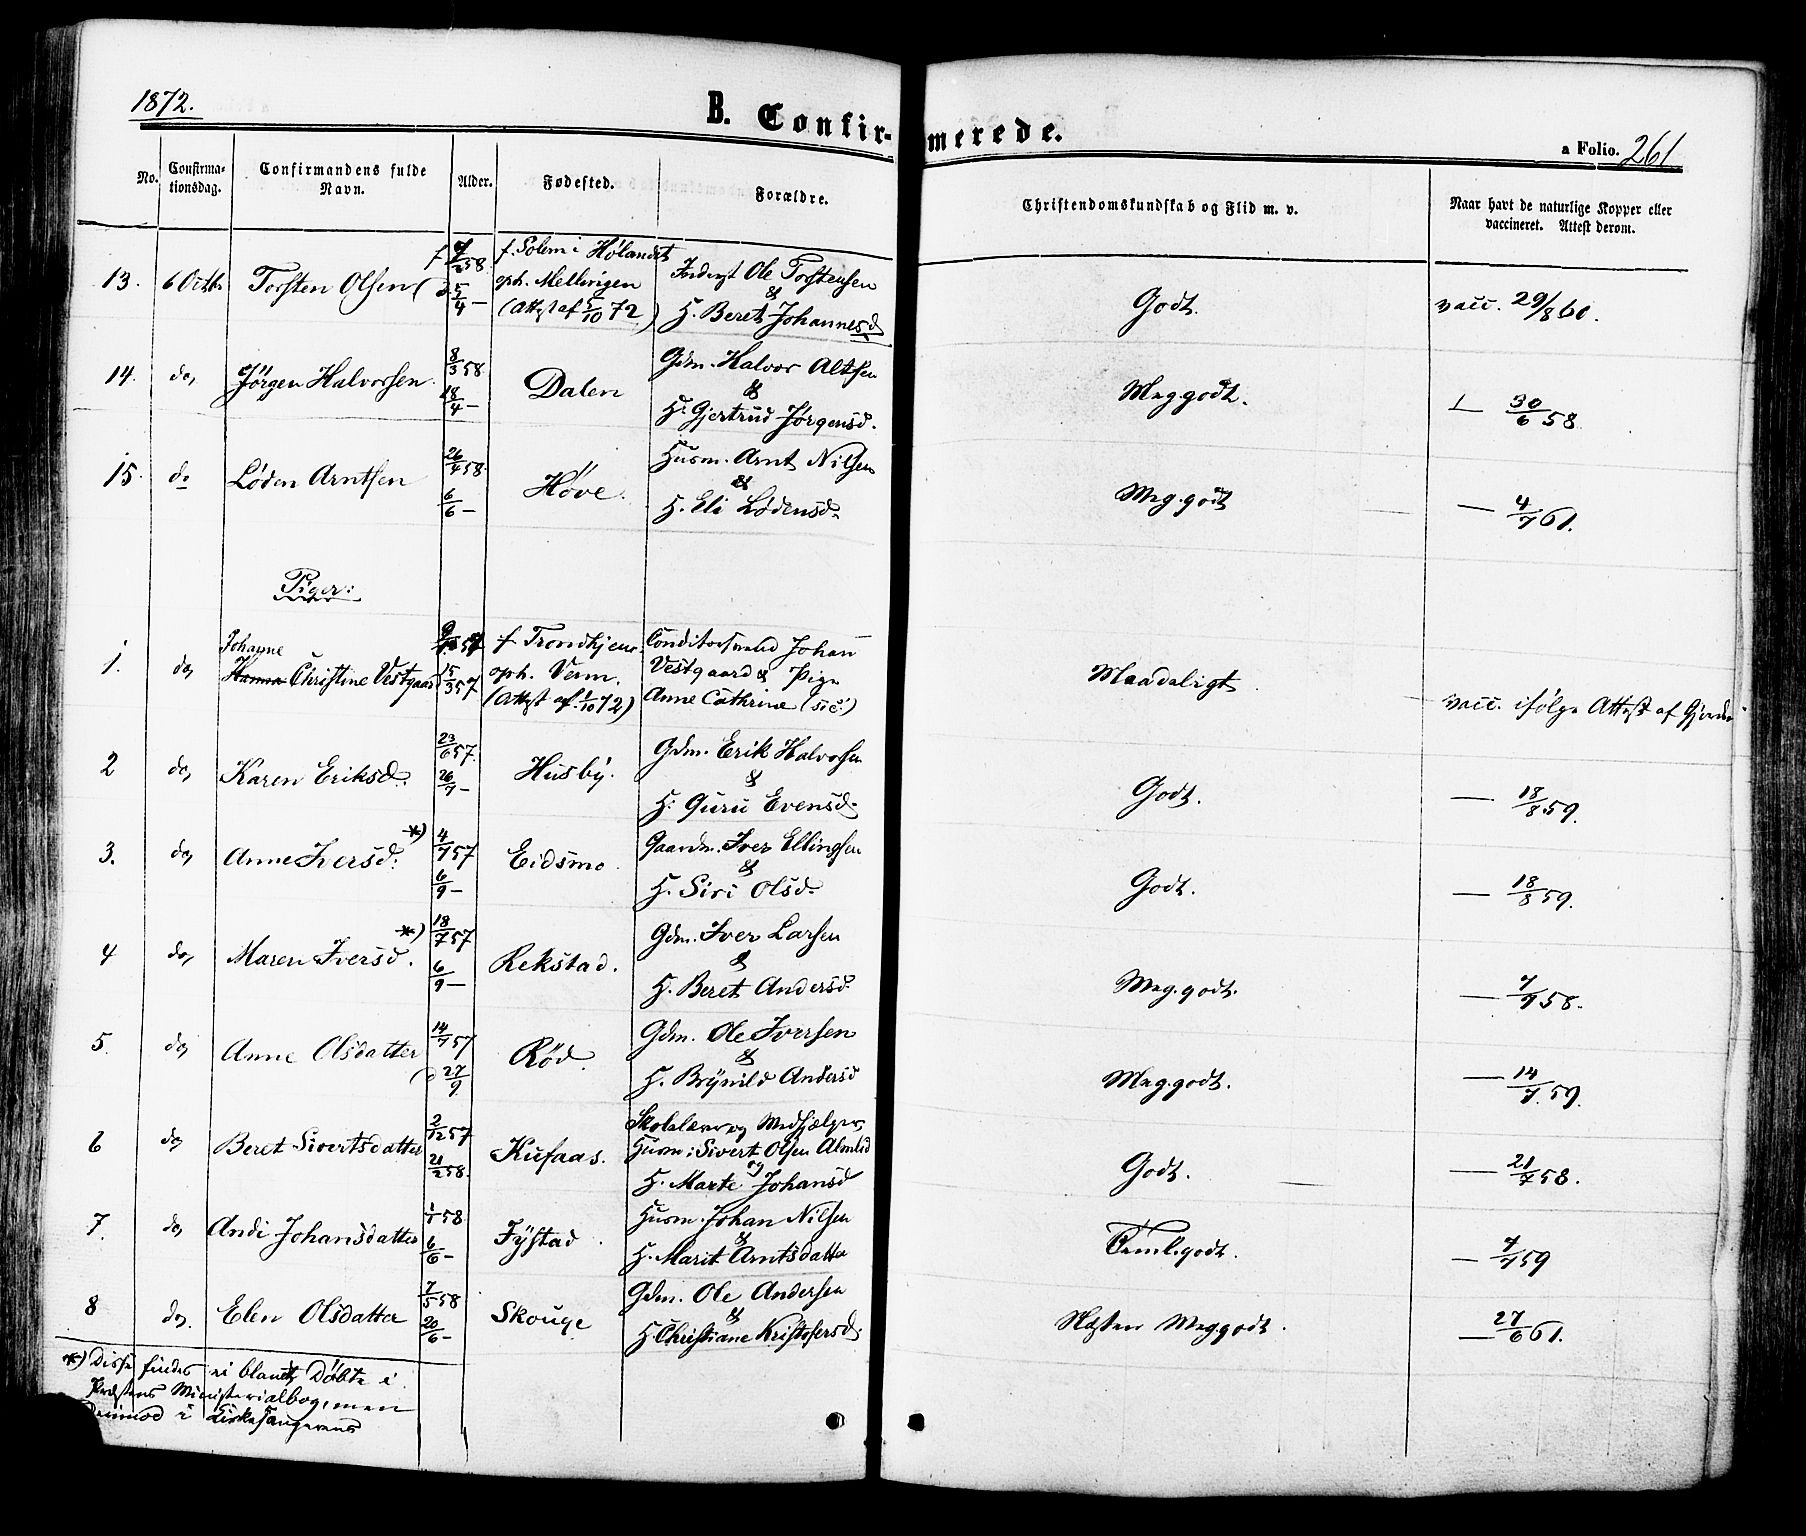 1872.
B. Confirmerede.
a Folio. 261
No.
Confirmationsdag.
Confirmandens fulde Navn.
Alder.
Fødested.
Forældre.
Christendomskundskab og Flid m. v.
Naar havt de naturlige Kopper eller vaccineret. Attest derom.
13. 6 Octbr Torsten Olsen f. 58. 5/4 — f. Solem i Hølandet
oph. Mellingen
(Attest af 5/10 72)
Ole Torstensen
&
H. Beret Johannesd
Godt.
vacc. 29/8 60.
14. do, Jörgen Halvorsen. 8/3 58. 18/4 — Dalen
Gdm. Halvor Altsen
&
H: Gjertrud Jörgensd.
Meg godt.
30/6 58
15. do Löden Arntsen 26/4 58. 6/6 — Höve.
Husm. Arnt Nilsen
&
H. Eli Lödensd.
Meg. godt
— 4/7 61.
Piger:
1. do, Johanne
Hanna Christine Vestgaard 57 15/3 57
f. Trondhjem
oph. Verm.
(Attest af. 1/10 72)
Conditorsvend Johan
Vestgaard & Pige
Anne Cathrine (sic!)
Maadeligt
vacc. ifølge Attest af
2 do, Karen Eriksd. 23/6 57. 26/7 — Husby.
Gdm. Erik Halvorsen
&
H: Guru Evensd.
Godt.
— 18/8 59.
3. do, Anne Iversd. *) 4/7 57 6/9 — Eidsmo.
Gaardm. Iver Ellingsen
&
H. Siri Olsd.
Godt.
— 18/8 59.
4 do, Maren Iversd. *) 18/7 57 6/9 — Rekstad.
Gdm. Iver Larsen
&
H. Beret Andersd.
Meg. godt.
— 7/7 58.
5. do, Anne Olsdatter 14/7 57 27/9. Röd.
Gdm. Ole Iversen
&
H. Brynild Andersd
Meg. godt.
— 14/7. 59.
6 do, Beret Sivertsdatter 2/12 57 21/2 58. Kufaas.
Skolelærer og Medhjælper,
Husm: Sivert Olsen Almlid
og
H. Marte Johansd
Godt.
— 21/7 58.
7. do, Andi Johansdatter 1/1 58 6/6 — Fystad.
Husm. Johan Nilsen
&
H. Marit Arntsdatter
Teml. godt.
— 7/7 59
8 do. Elen Olsdatter 7/5 58 20/6 — Skouge
Gdm. Ole Andersen
&
H. Christiane Kristofersd.
Næsten Meg godt.
— 27/6 61.
*) Disse findes ei blandt Döbte i
Præstens Ministerialbog, men
derimod i Kirkesangerens